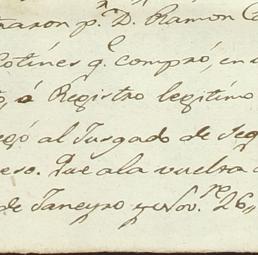 raron p.r D. Ramon C
Cotines q.e compró, en
o, ó Registro legitimo
ejó al Jusgado de Seg
eso. Fue ala vuelta
de Janeyro y Nov.re 26,,